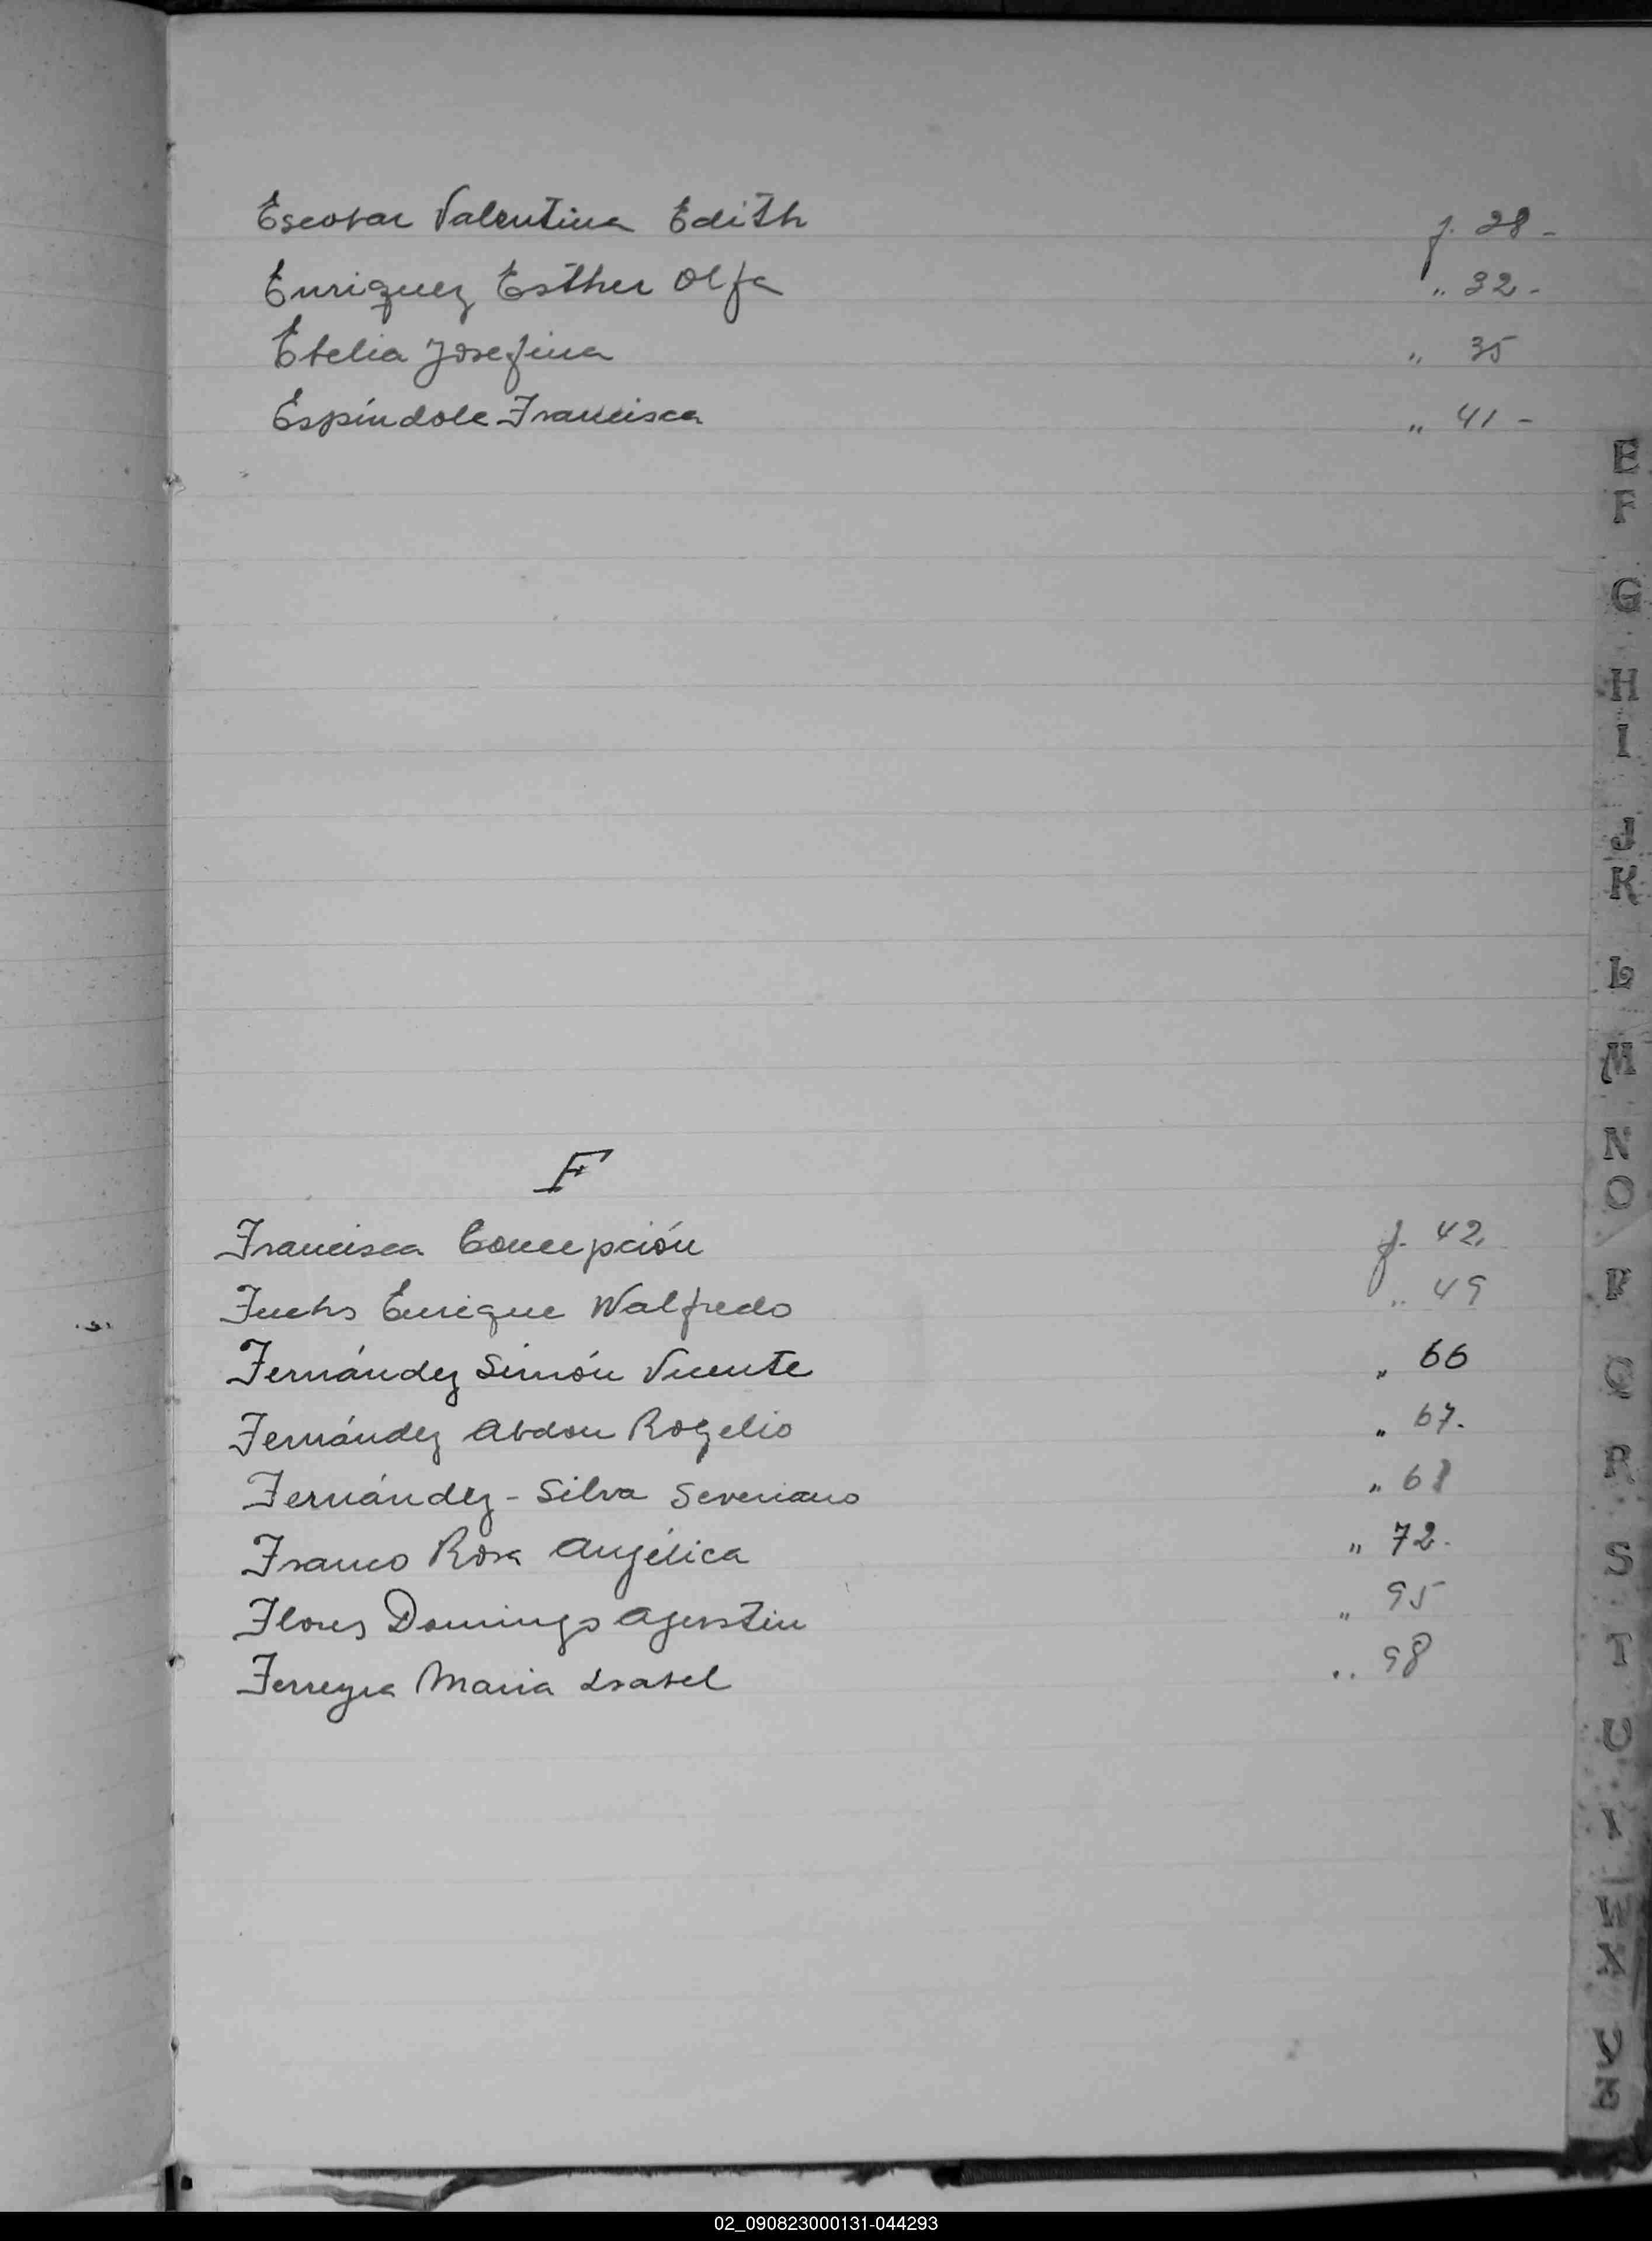 Escobar Valentina Edith f. 28 -
Enriquez Esther Olga „ 32 -
Etelia Josefina „ 35
Espíndola Francisca „ 41 -
F
Francisca Concepción f. 42.
Fuchs Enrique Walfredo „ 49
Fernández Simón Vicente „ 66
Fernández Abdon Rogelio „ 67.
Fernández - Silva Severiano „ 68
Franco Rosa Angélica „ 72.
Flores Domingo Agustin „ 95
Ferreyra Maria Isabel „ 98
E
F
G
H
I
J
K
L
M
N
O
P
Q
R
S
T
U
02_090823000131-044293